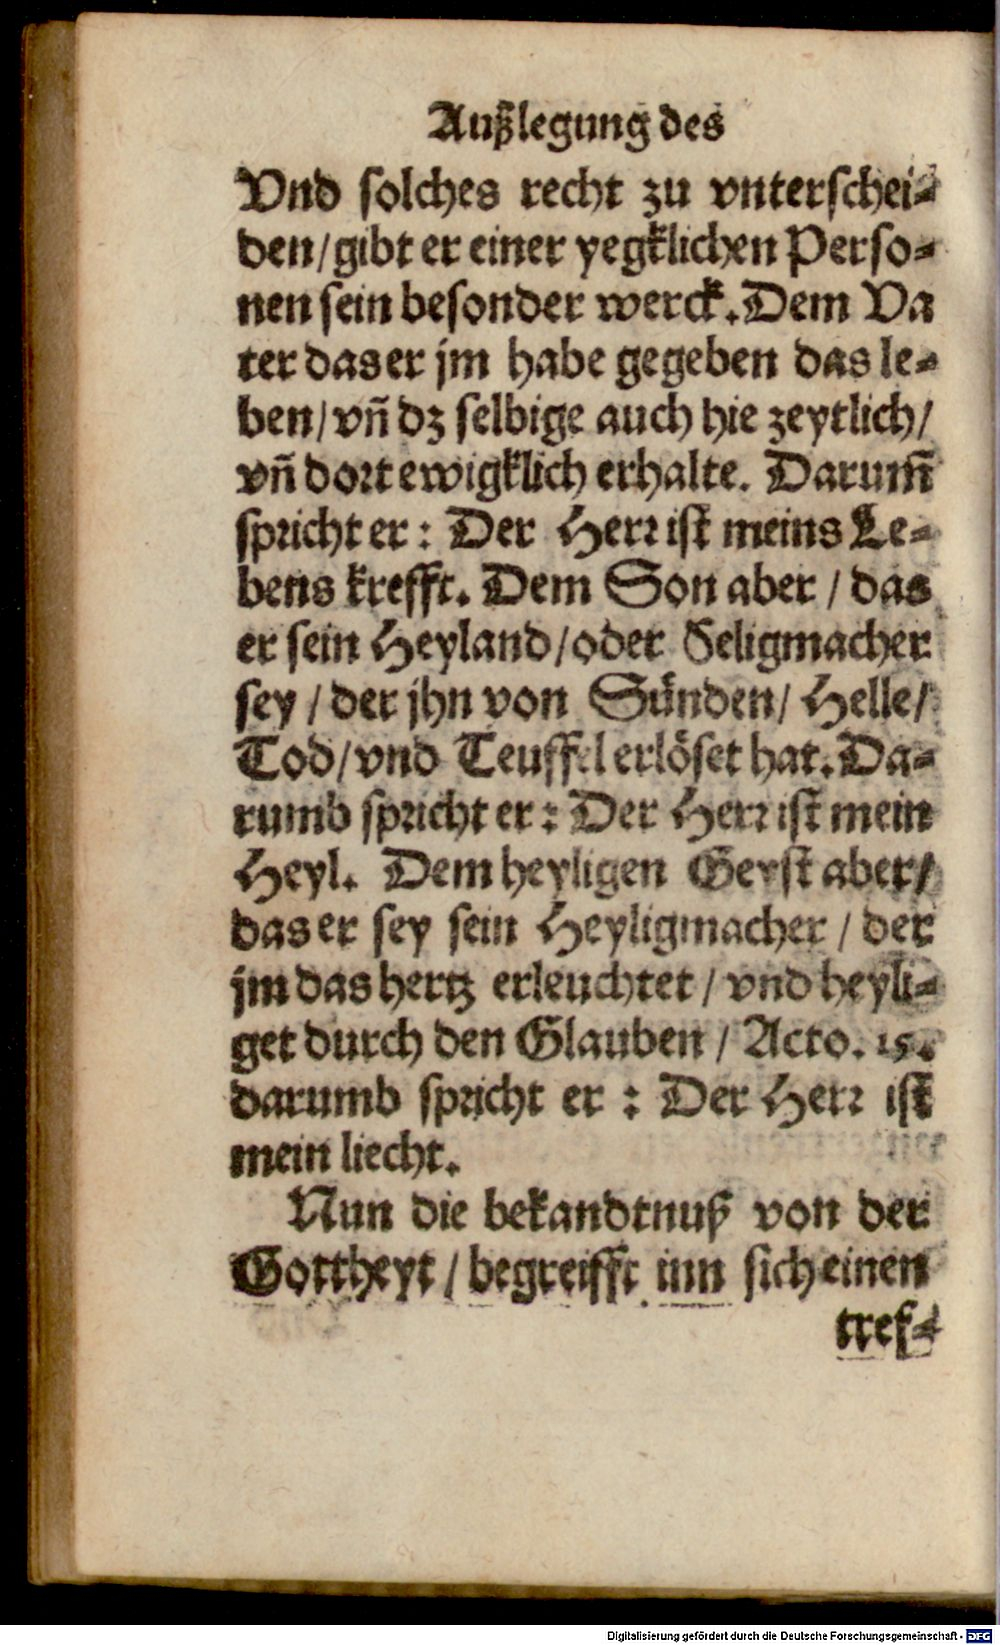 Außlegung des
Vnd solches recht zu vnterschei-
den/gibt er einer yegklichen Perso-
nen sein besonder werck. Dem Va
ter das er jm habe gegeben das le-
ben/ vñ dz selbige auch hie zeytlich/
vñ dort ewigklich erhalte. Darum̃
spricht er: Der Herr ist meins Le-
bens krefft. Dem Son aber / das
er sein Heyland/oder Seligmacher
sey / der jhn von Sünden/ Helle/
Tod/vnd Teuffel erlöset hat. Da-
rumb spricht er: Der Herr ist mein
Heyl. Dem heyligen Geyst aber/
das er sey sein Heyligmacher / der
jm das hertz erleuchtet / vnd heyli-
get durch den Glauben / Acto. 15.
darumb spricht er : Der Herr ist
mein liecht.
Nun die bekandtnuß von der
Gottheyt / begreifft inn sich einen
tref-
Digitalisierung gefördert durch die Deutsche Forschungsgemeinschaft - DFG